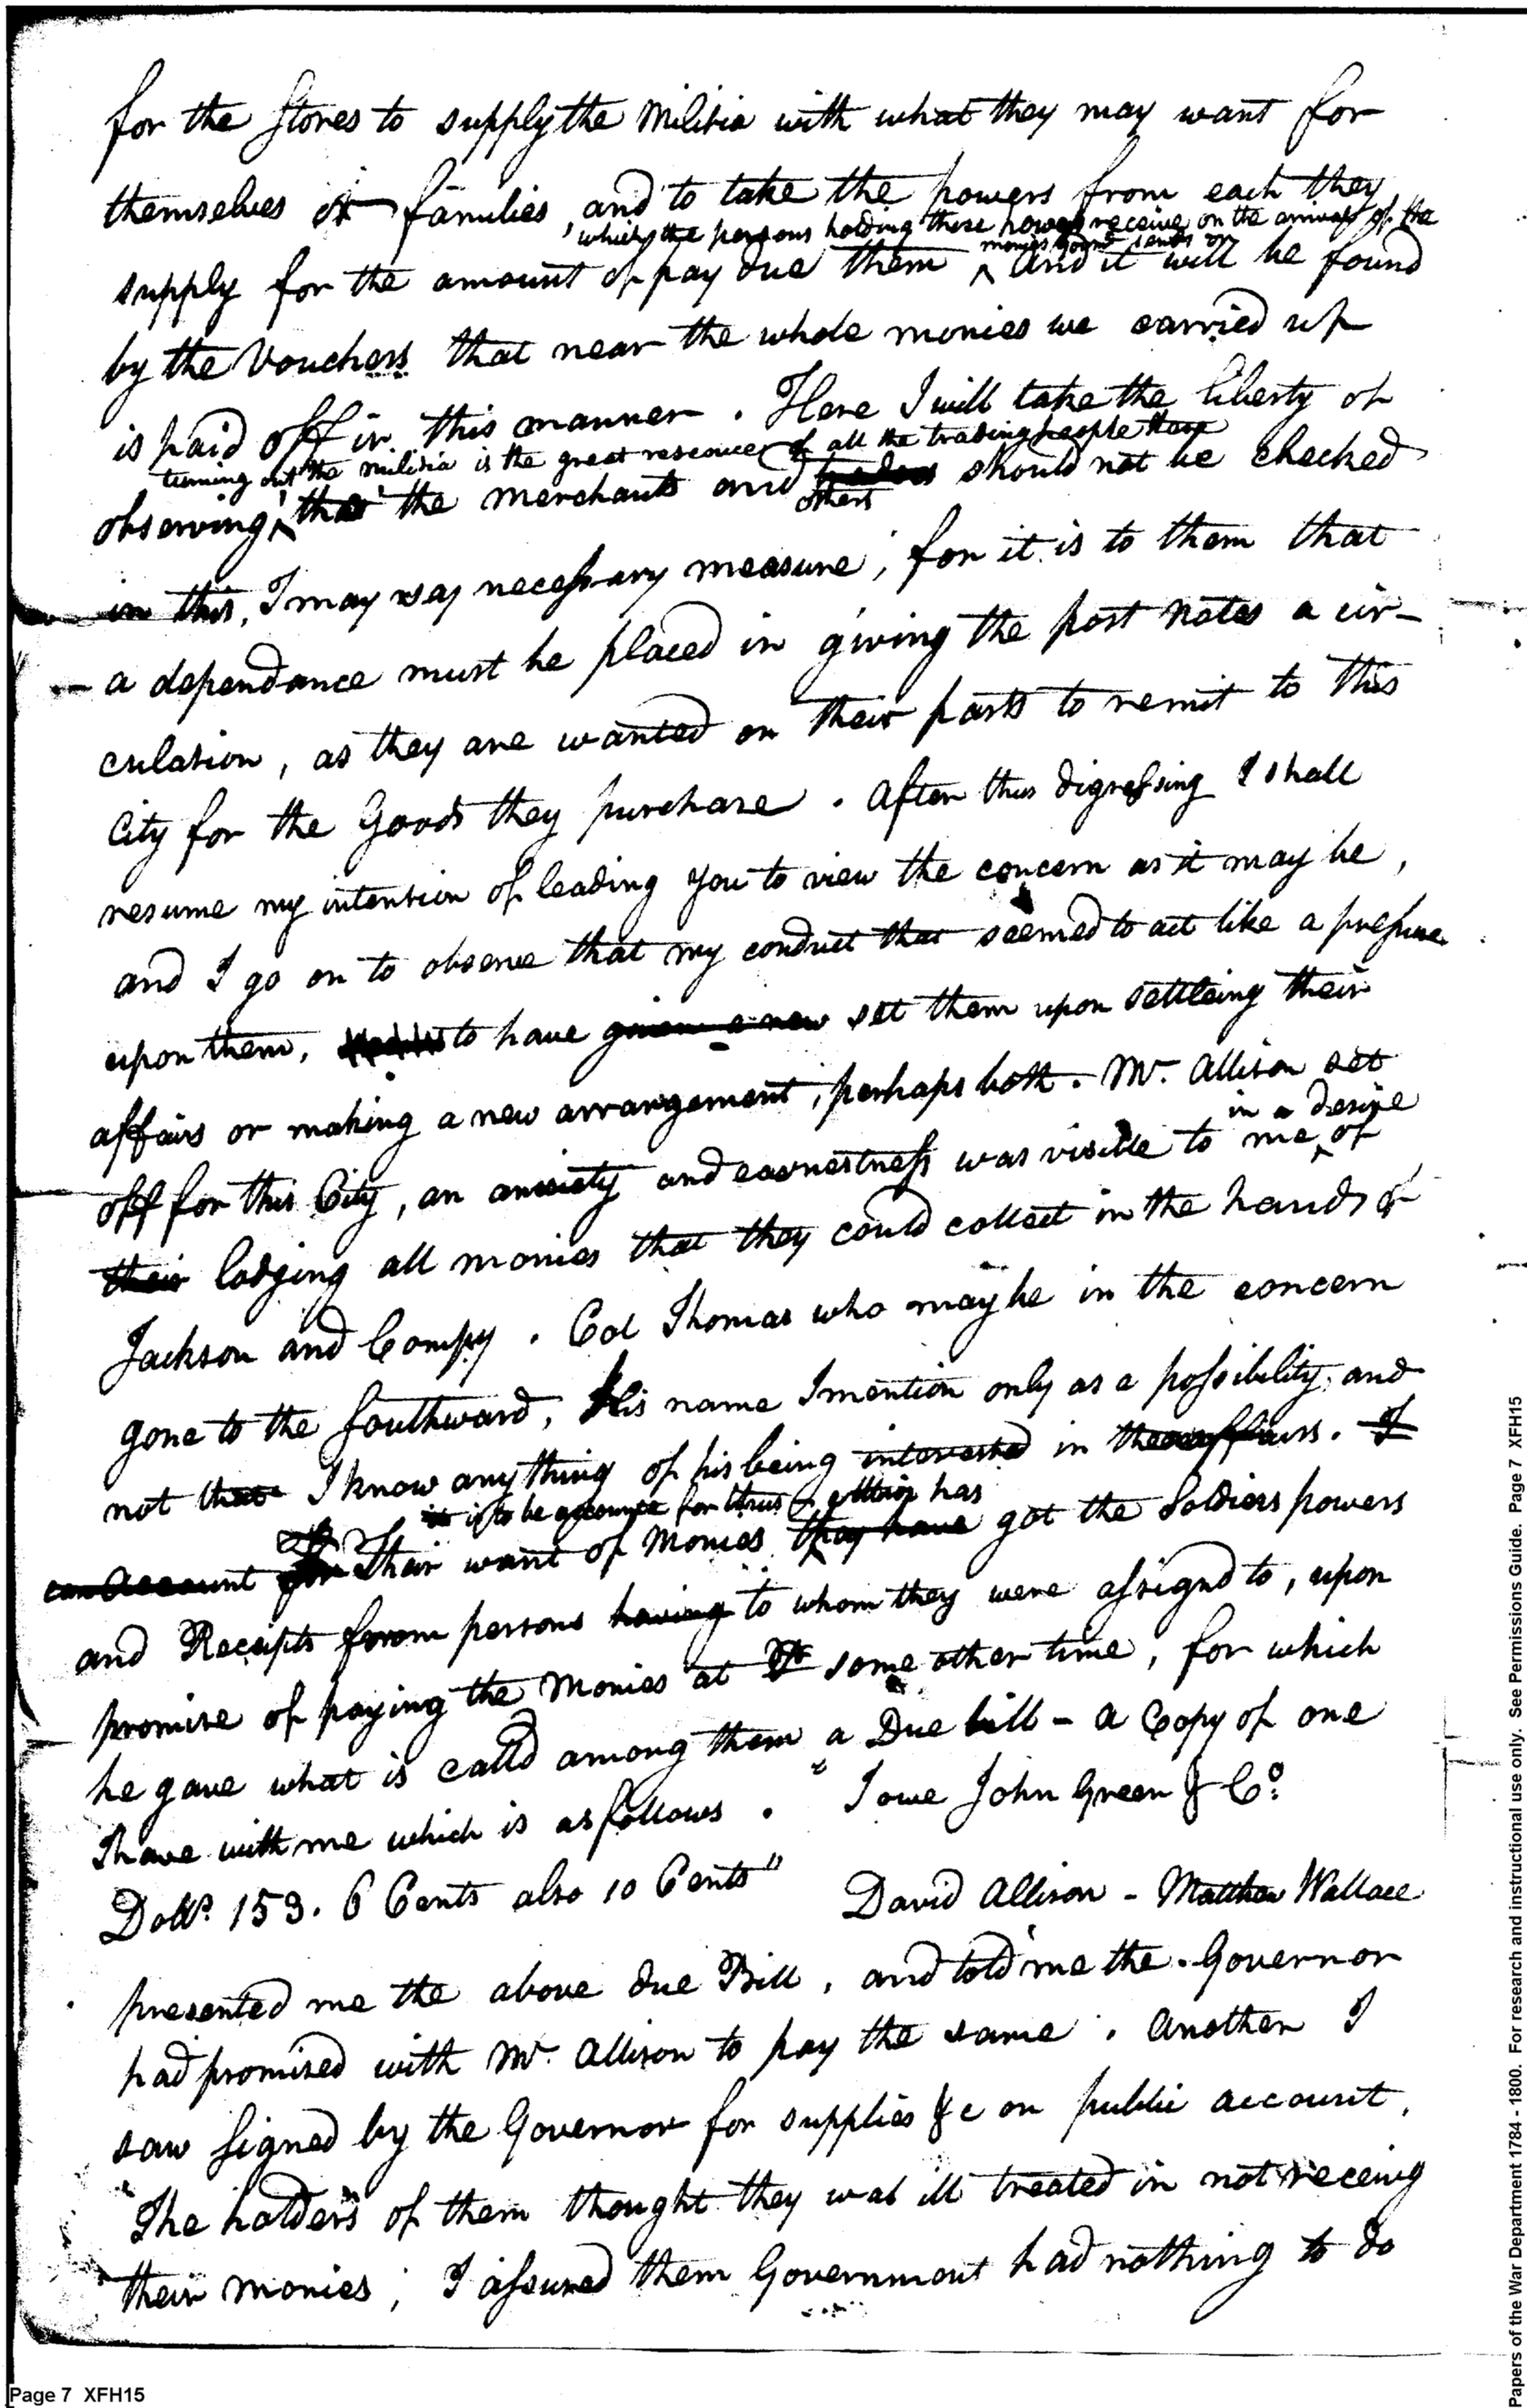 for the Stores to supply the Militia with what they may want for
themselves or families, and to take the powers from each they
which the persons holding these powers receive on the arrival of the
monies Govmt sends on
supply for the amount of pay due them ^ and it will be found
by the Vouchers that near the whole monies we carried up
is paid off in this manner. Here I will take the liberty of
turning out the militia is the great resource of all the trading people there
observing ^ that the merchants and others should not be checked
in this, I may say necessary measure, for it is to them that
a dependance must be placed in giving the post notes a cir-
culation, as they are wanted on their parts to remit to this
City for the Goods they purchase. After thus digressing I shall
resume my intention of leading you to view the concern as it may be,
and I go on to observe that my conduct that seemed to act like a pressure
upon them, to have given a new set them upon settleing their
affairs or making a new arrangement, perhaps both. Mr. Allison set
in a desire
off for this City, an anxiety and earnestness was visible to me ^ of
their lodging all monies that they could collect in the hands of
Jackson and Compy. Col Thomas who may be in the concern
gone to the Southward, His name I mention only as a possibility, and
not that I know any thing of his being interested in their affairs. I
is to be accounted for thus - Allison has
can Account for Their want of Monies they have got the Soldiers powers
and Receipts from persons having to whom they were assignd to, upon
promise of paying the Monies at some other time, for which
he gave what is calld among them a Due bill - a Copy of one
I have with me which is as follows. "I owe John Green & Co.
Dolls. 153. 6 Cents also 10 Cents" David Allison - Matthew Wallace
presented me the above due Bill, and told me the Governor
had promised with Mr. Allison to pay the same. Another I
saw signed by the Governor for supplies &c on public account.
The holders of them thought they was ill treated in not receing
their monies; I assured them Government had nothing to do
Page 7 XFH15
Papers of the War Department 1784 - 1800. For research and instructional use only. See Permissions Guide. Page 7 XFH15